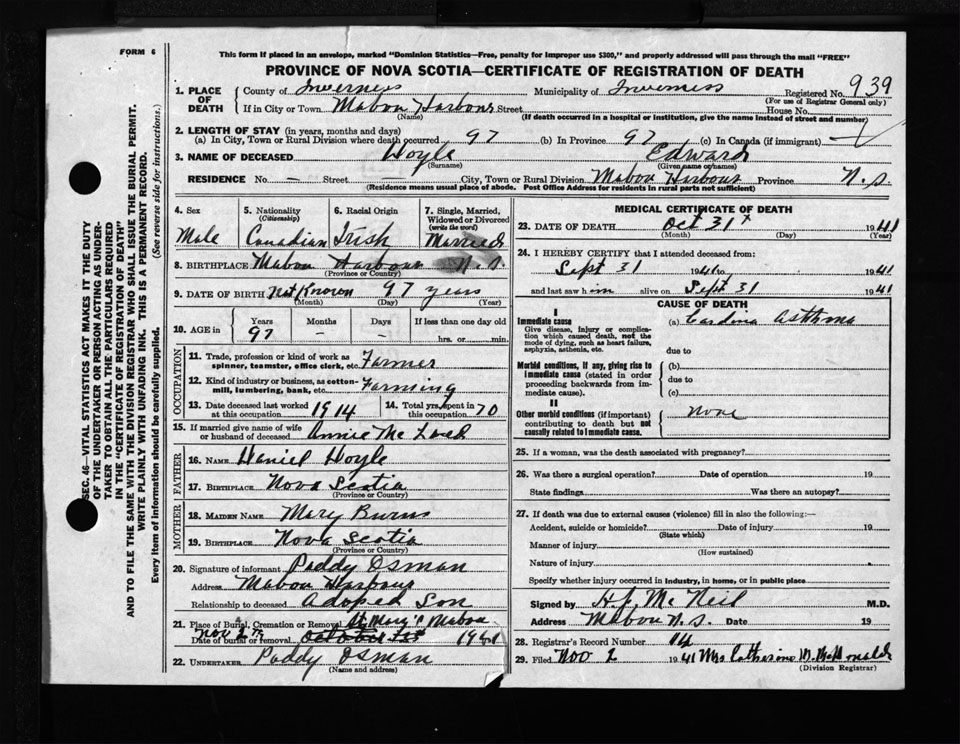 FORM 6
This form if placed in an envelope, marked "Dominion Statistics—Free, penalty for improper use $300," and properly addressed will pass through the mail "FREE"
PROVINCE OF NOVA SCOTIA—CERTIFICATE OF REGISTRATION OF DEATH
SEC. 46—VITAL STATISTICS ACT MAKES IT THE DUTY
OF THE UNDERTAKER OR PERSON ACTING AS UNDER-
TAKER TO OBTAIN ALL THE PARTICULARS REQUIRED
IN THE "CERTIFICATE OF REGISTRATION OF DEATH"
AND TO FILE THE SAME WITH THE DIVISION REGISTRAR WHO SHALL ISSUE THE BURIAL PERMIT.
WRITE PLAINLY WITH UNFADING INK. THIS IS A PERMANENT RECORD.
Every item of information should be carefully supplied. (See reverse side for instructions.)
1. PLACE OF DEATH
County of Inverness Municipality of Inverness Registered No. 939
(For use of Registrar General only)
If in City or Town Mabou Harbour Street House No.
(Name) (If death occurred in a hospital or institution, give the name instead of street and number)
2. LENGTH OF STAY (in years, months and days)
(a) In City, Town or Rural Division where death occurred 97 (b) In Province 97 (c) In Canada (if immigrant)
3. NAME OF DECEASED Hoyle Edward
(Surname) (Given name or names)
RESIDENCE No. — Street City, Town or Rural Division Mabou Harbour Province N.S.
(Residence means usual place of abode. Post Office Address for residents in rural parts not sufficient)
4. Sex
Male
5. Nationality
(Citizenship)
Canadian
6. Racial Origin
Irish
7. Single, Married,
Widowed or Divorced
(write the word)
Married
8. BIRTHPLACE Mabou Harbour N.S.
(Province or Country)
9. DATE OF BIRTH Not Known 97 years
(Month) (Day) (Year)
10. AGE in Years Months Days If less than one day old
97 — — hrs. or min.
OCCUPATION
11. Trade, profession or kind of work as
spinner, teamster, office clerk, etc. Farmer
12. Kind of industry or business, as cotton-
mill, lumbering, bank, etc. Farming
13. Date deceased last worked
at this occupation 1914
14. Total yrs. spent in
this occupation 70
15. If married give name of wife
or husband of deceased Annie Mc
FATHER
16. NAME Daniel Hoyle
17. BIRTHPLACE Nova Scotia
(Province or Country)
MOTHER
18. MAIDEN NAME Mary Burns
19. BIRTHPLACE Nova Scotia
(Province or Country)
20. Signature of informant Paddy Osman
Address Mabou Harbour
Relationship to deceased Adoped Son
21. Place of Burial, Cremation or Removal St Mary's Mabou
Date of burial or removal Nov 2 1941
22. UNDERTAKER Paddy Osman
(Name and address)
MEDICAL CERTIFICATE OF DEATH
23. DATE OF DEATH Oct 31 1941
(Month) (Day) (Year)
24. I HEREBY CERTIFY that I attended deceased from:
Sept 31 1941 to 1941
and last saw him alive on Sept 31 1941
CAUSE OF DEATH
I
Immediate cause
Give disease, injury or complica-
tion which caused death, not the
mode of dying, such as heart failure,
asphyxia, asthenia, etc.
(a) Asthma
due to
Morbid conditions, if any, giving rise to
immediate cause (stated in order
proceeding backwards from im-
mediate cause).
(b)
due to
(c)
II
Other morbid conditions (if important)
contributing to death but not
causally related to immediate cause.
None
25. If a woman, was the death associated with pregnancy?
26. Was there a surgical operation? Date of operation 19
State findings Was there an autopsy?
27. If death was due to external causes (violence) fill in also the following:—
Accident, suicide or homicide? Date of injury 19
(State which)
Manner of injury
(How sustained)
Nature of injury
Specify whether injury occurred in industry, in home, or in public place
Signed by H.J. McNeil M.D.
Address Mabou N.S. Date 19
28. Registrar's Record Number 14
29. Filed Nov 2 1941 Mrs Catherine McDonald
(Division Registrar)